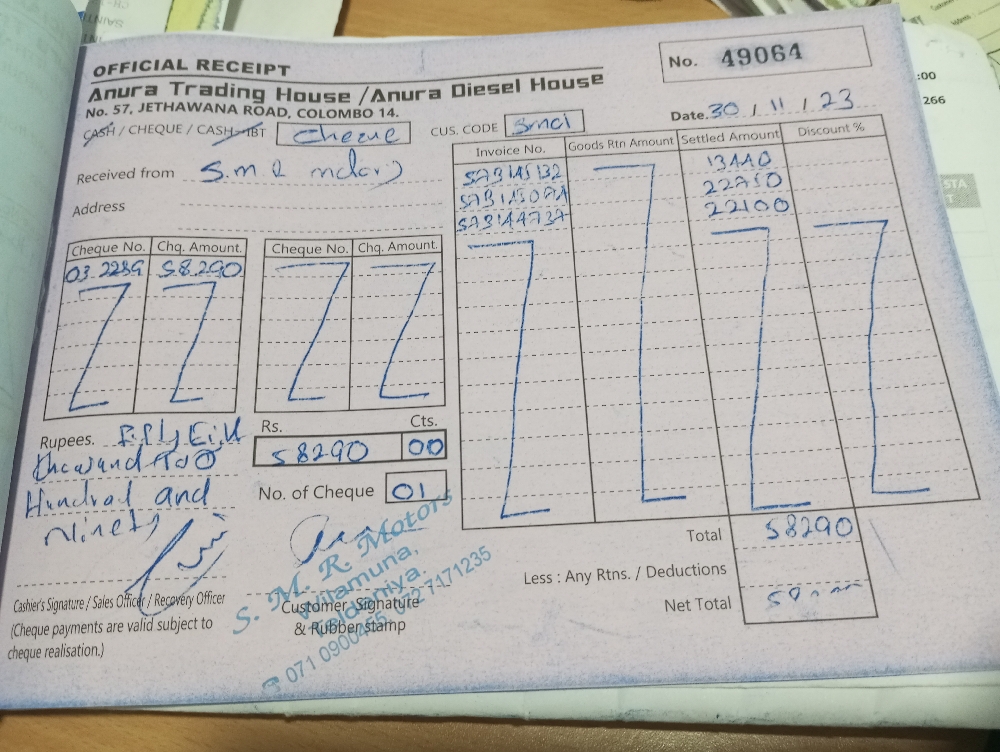 OFFICIAL RECEIPT
Anura Trading House / Anura Diesel House
No. 57, JETHAWANA ROAD, COLOMBO 14.
No. 49064
Date. 30 / 11 / 23
CASH / CHEQUE / CASH-IBT Cheque
CUS. CODE
Received from S.m R
Address
Invoice No. Goods Rtn Amount Settled Amount Discount %
13440
22750
22100
Cheque No. Chq. Amount. Cheque No. Chq. Amount.
58290
Rupees. Fifty Eight
thousand Two
Hundred and
Ninety
Rs. Cts.
58290 00
No. of Cheque 01
Total 58290
Less : Any Rtns. / Deductions
Net Total
S. M. R. Motors
Cashier's Signature / Sales Officer / Recovery Officer
(Cheque payments are valid subject to
cheque realisation.)
Customer Signature
& Rubber stamp
072 7171235
:00
266